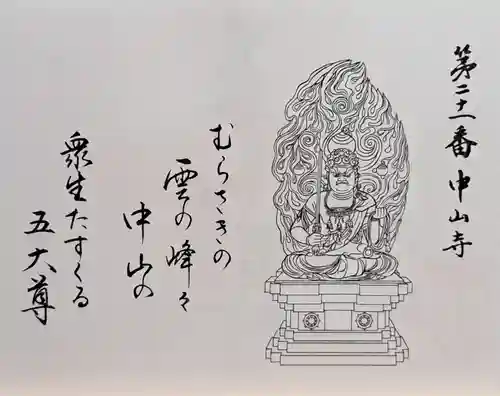 第二十一番中山寺
むらさきの
雲の峰々
中山の
衆生たすくる
五大尊